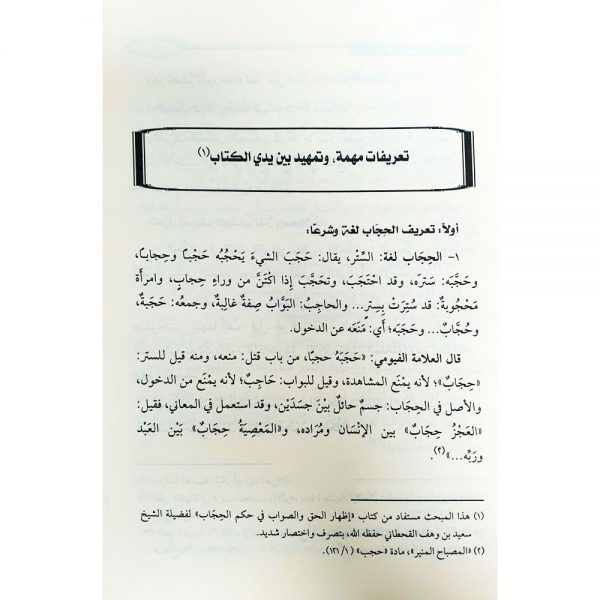 تعريفات مهمة، وتمهيد بين يدي الكتاب(١)
أولاً: تعريف الحِجَاب لغة وشرعًا:
١- الحِجَاب لغة: السِّتْر، يقال: حَجَبَ الشيءَ يَحْجُبُه حَجْبًا وحِجابًا،
وحَجَّبَه: سَتَرَه، وقد احْتَجَبَ، وتحَجَّبَ إذا اكْتَنَّ من وراءِ حِجابٍ، وامرأة
مَحْجُوبةٌ: قد سُتِرَتْ بِسِترٍ... والحاجِبُ: البَوَّابُ صِفةٌ غالِبةٌ، وجمعُه: حَجَبةٌ،
وحُجَّابٌ... وحَجَبَه؛ أي: مَنَعَه عن الدخول.
قال العلامة الفيومي: «حَجَبَهُ حجبًا، من باب قتل: منعه، ومنه قيل للستر:
«حِجَابٌ»؛ لأنه يمْنَع المشاهدة، وقيل للبواب: حَاجِبٌ؛ لأنه يمْنَع من الدخول،
والأصل في الحِجَاب: جسمٌ حائلٌ بيْنَ جسدَيْن، وقد استعمل في المعاني، فقيل:
«العَجْزُ حِجَابٌ» بين الإنْسَان ومُرَاده، و«المَعْصِيَةُ حِجَابٌ» بَيْن العَبْد
وربِّه...»(٢).
(١) هذا المبحث مستفاد من كتاب «إظهار الحق والصواب في حكم الحِجَاب» لفضيلة الشيخ
سعيد بن وهف القحطاني حفظه الله، بتصرف واختصار شديد.
(٢) «المصباح المنير»، مادة «حجب» (١/ ١٢١).